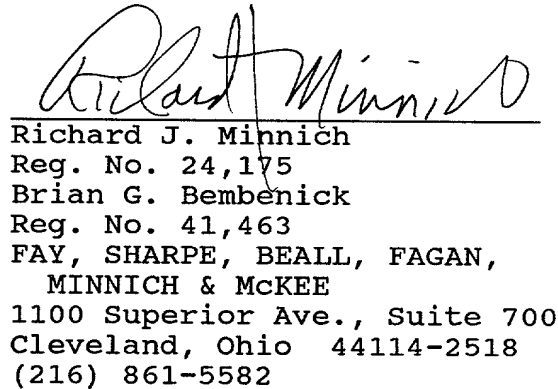 Richard Minnich
Richard J. Minnich
Reg. No. 24,175
Brian G. Bembenick
Reg. No. 41,463
FAY, SHARPE, BEALL, FAGAN,
MINNICH & McKEE
1100 Superior Ave., Suite 700
Cleveland, Ohio 44114-2518
(216) 861-5582